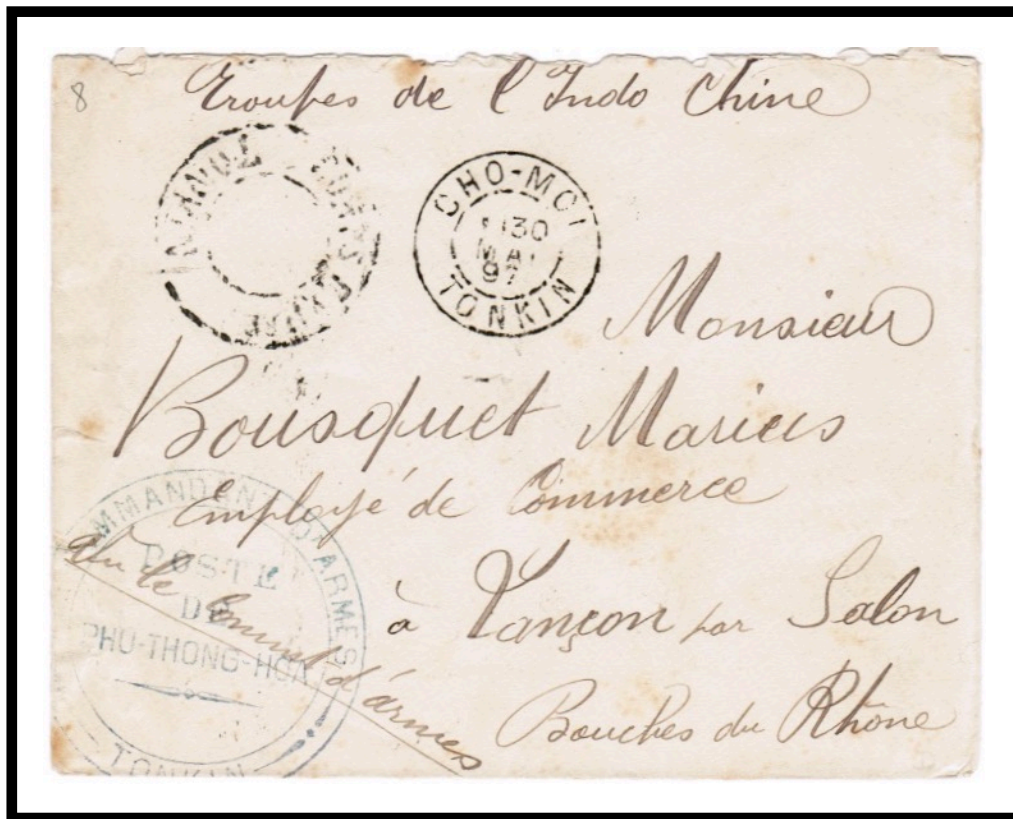 8
Troupes de l'Indo Chine
CORR. D'ARMÉES
CHO-MOI
30
MAI
97
TONKIN
Monsieur
Bousquet Marius
Employé de Commerce
à Lançon par Salon
Bouches du Rhône
COMMANDANT D'ARMES
POSTE
DE
PHU-THONG-HOA
TONKIN
Vu le Commt d'armes